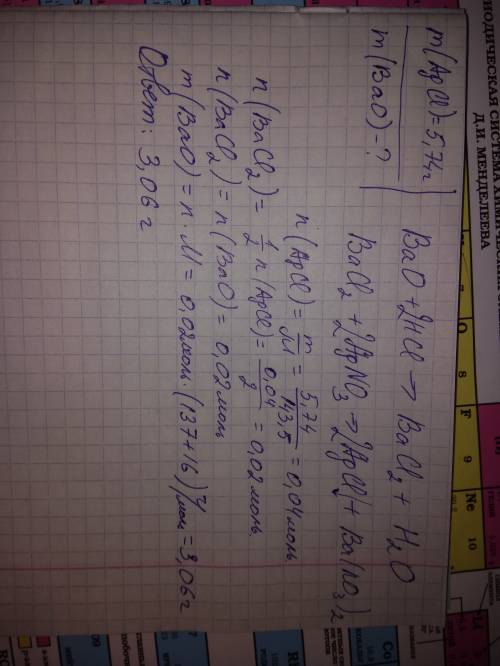 ИОДИЧЕСКАЯ СИСТЕМА
Д.И. МЕНДЕЛЕЕВА
O 8
F 9
Ne 10
m(AgCl)=5,74г
m(BaO)-?
BaO+2HCl → BaCl₂ + H₂O
BaCl₂ + 2AgNO₃ → 2AgCl↓ + Ba(NO₃)₂
n(AgCl) = m/M = 5,74/143,5 = 0,04 моль
n(BaCl₂) = 1/2 n(AgCl) = 0,04/2 = 0,02 моль
n(BaCl₂) = n(BaO) = 0,02 моль
m(BaO) = n·M = 0,02моль·(137+16) г/моль = 3,06 г
Ответ: 3,06 г